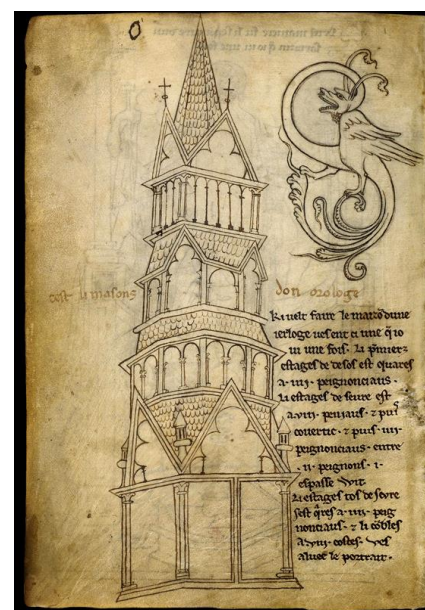 cest li masons don orologe
Ki velt faire le maizō dune
ierloge ves ent ci une q̄ io
vi une fois. Li p̄miers
estages de desos est quares
a .iiii. peignonciaus.
Li estages de seure est
a .viii. peniaus ⁊ puis
covertic ⁊ puis .iiii.
peignonciaus entre
.ii. peignons .i.
espasse wit
Li estages tos de sevre
sest q̄res a .iiii. peig
nonciaus ⁊ li cōbles
a .viii. costes. ves
aluec le portrait.